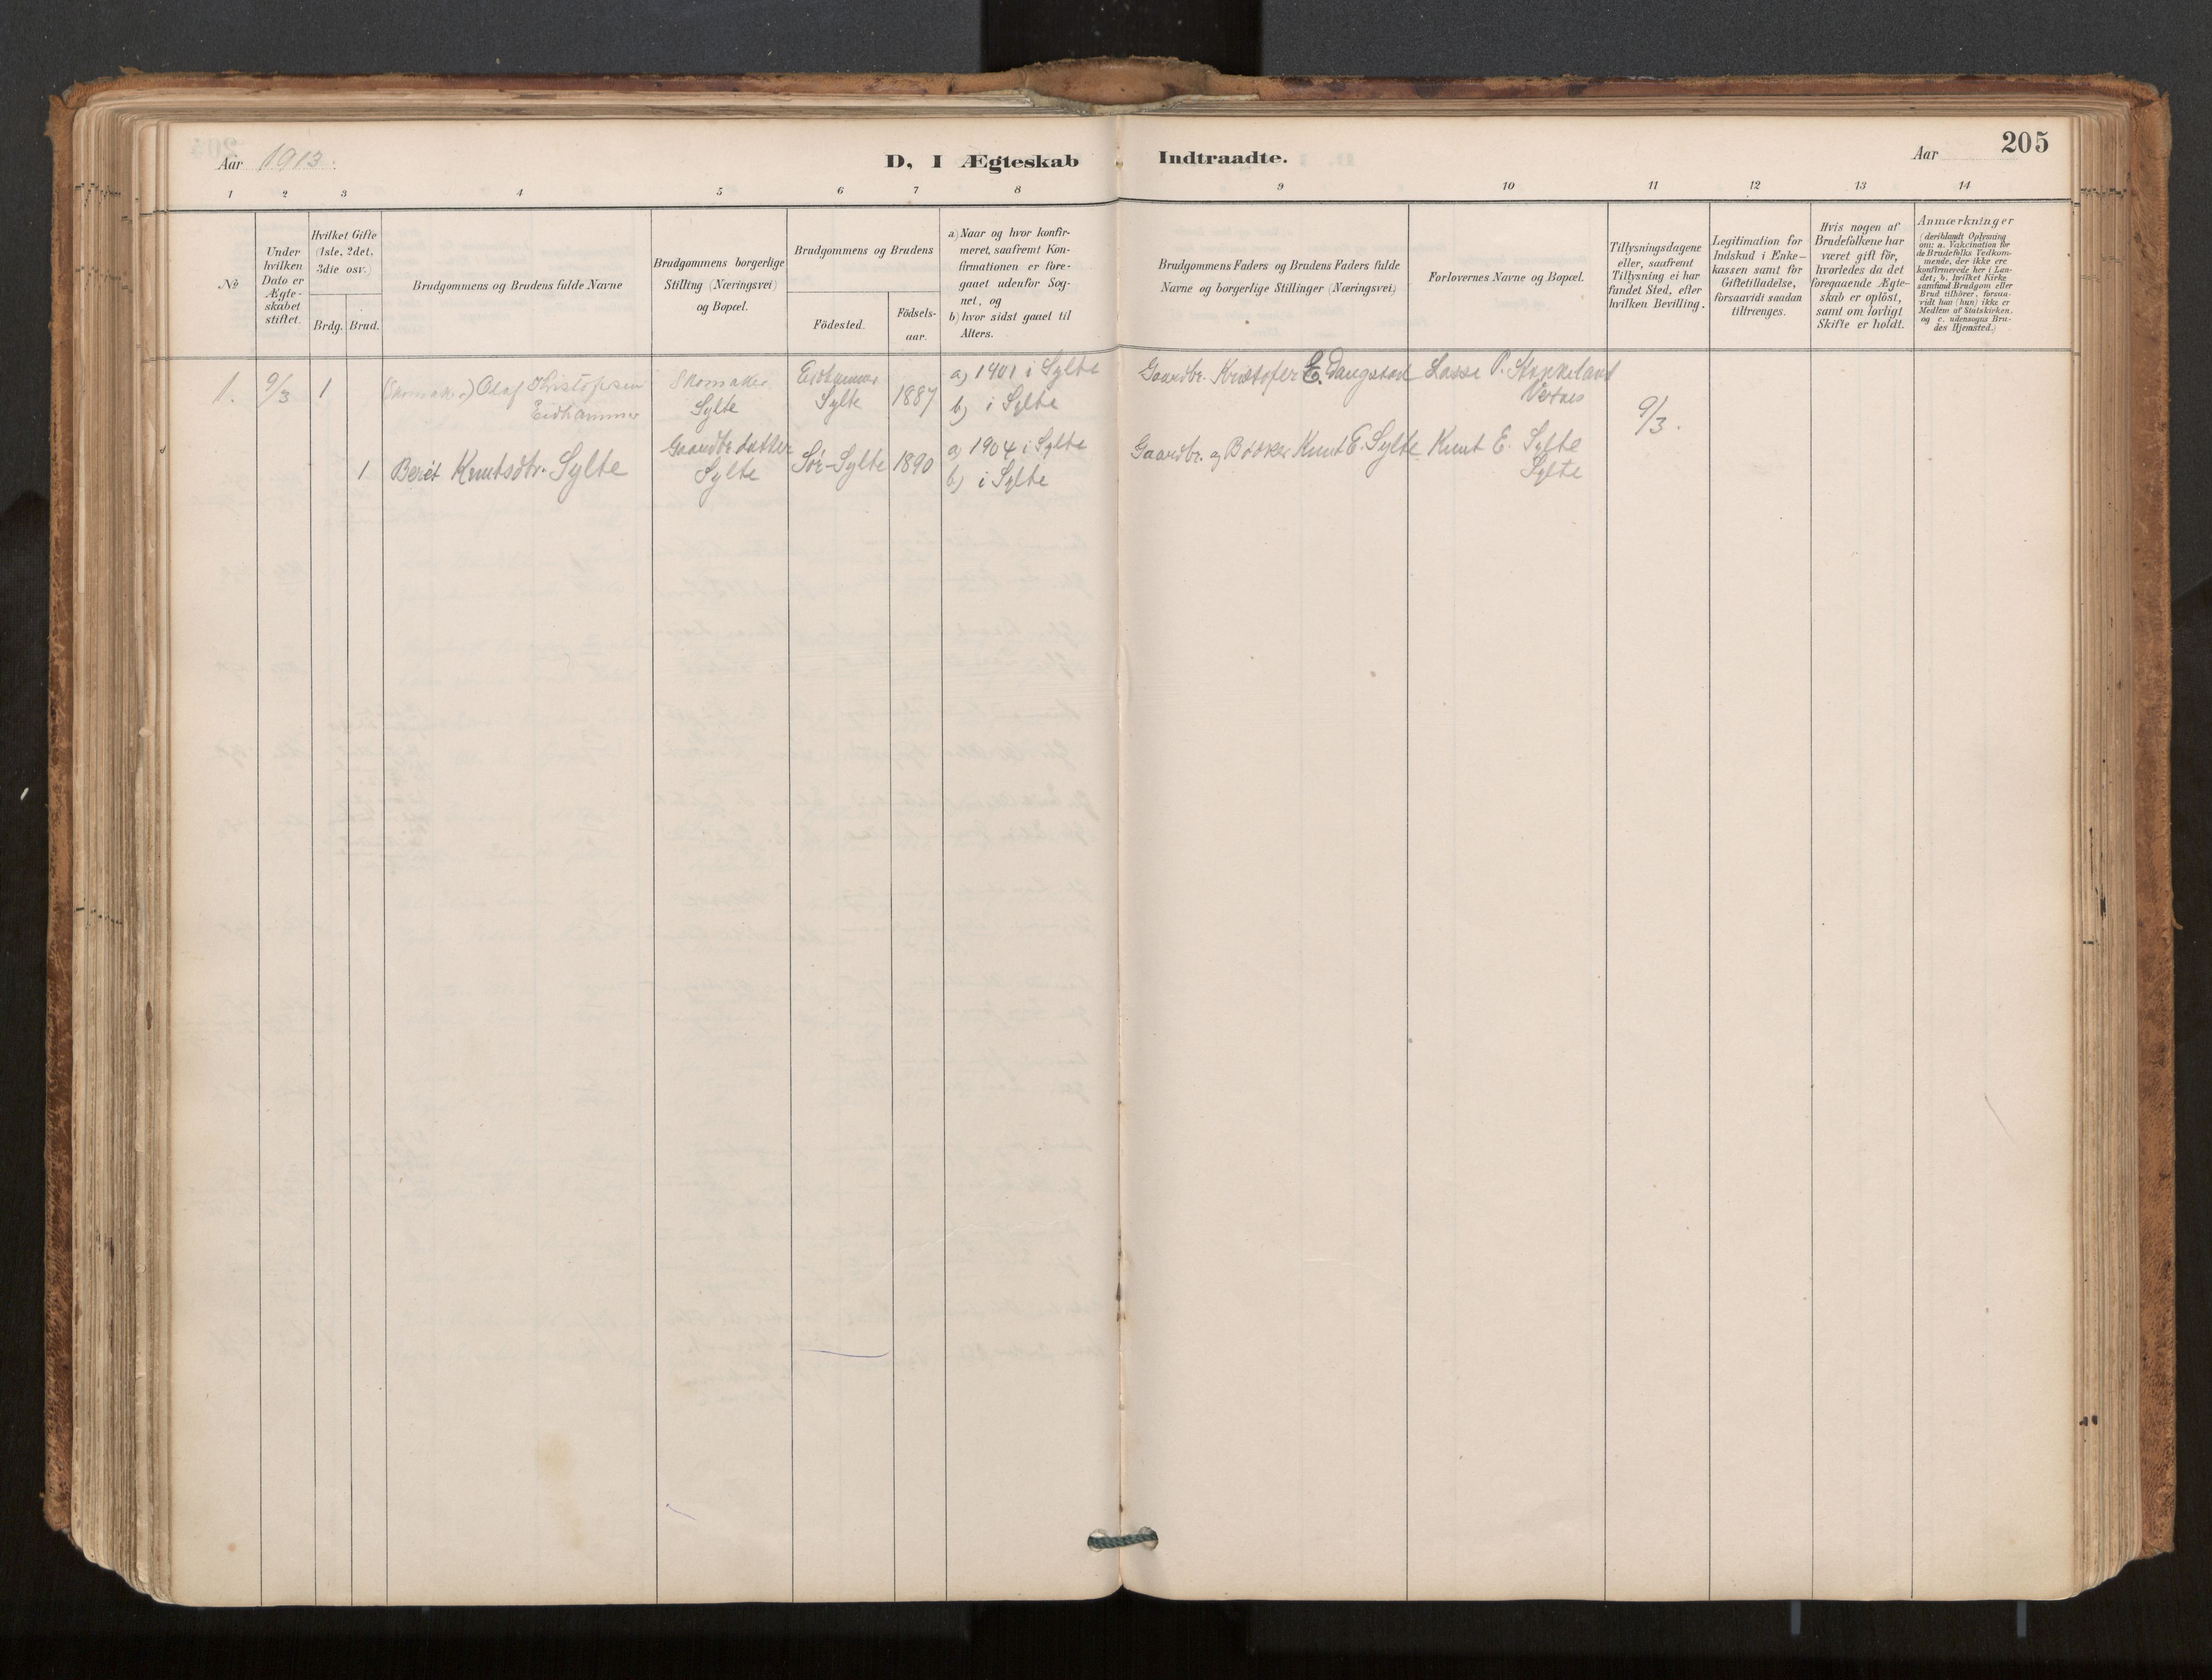 Aar 1913.
D, I Ægteskab Indtraadte.
Aar
205
1 2 3 4 5 6 7 8 9 10 11 12 13 14
№
Under
hvilken
Dato er
Ægte-
skabet
stiftet.
Hvilket Gifte
(1ste, 2det,
3die osv.)
Brdg. Brud.
Brudgommens og Brudens fulde Navne
Brudgommens borgerlige
Stilling (Næringsvei)
og Bopæl.
Brudgommens og Brudens
Födested.
Födsels-
aar.
a) Naar og hvor konfir-
meret, saafremt Kon-
firmationen er fore-
gaaet udenfor Sog-
net, og
b) hvor sidst gaaet til
Alters.
Brudgommens Faders og Brudens Faders fulde
Navne og borgerlige Stillinger (Næringsvei)
Forlovernes Navne og Bopæl.
Tillysningsdagene
eller, saafremt
Tillysning ei har
fundet Sted, efter
hvilken Bevilling.
Legitimation for
Indskud i Enke-
kassen samt for
Giftetilladelse,
forsaavidt saadan
tiltrænges.
Hvis nogen af
Brudefolkene har
været gift för,
hvorledes da det
foregaaende Ægte-
skab er oplöst,
samt om lovligt
Skifte er holdt.
Anmærkninger
(deriblandt Oplysning
om: a. Vakcination for
de Brudefolks Vedkom-
mende, der ikke ere
konfirmerede her i Lan-
det; b. hvilket Kirke
samfund Brudgom eller
Brud tilhörer, forsaa-
vidt han (hun) ikke er
Medlem af Statskirken,
og c. udensogns Bru-
des Hjemsted.)
1. 9/3 1 (Skomaker) Olaf Kristofersen
Eidhammer
Skomaker
Sylte
Eidhammer
Sylte
1887
a) 1901 i Sylte
b) i Sylte
Gaardbr. Kristofer E. Daugstad
Lasse P. Stokkeland
9/3.
1 Berit Knutsdtr. Sylte
Gaardbr.datter
Sylte
Sör-Sylte
1890
a) 1904 i Sylte
b) i Sylte
Gaardbr. og Bödker Knut E. Sylte
Knut E. Sylte
Sylte